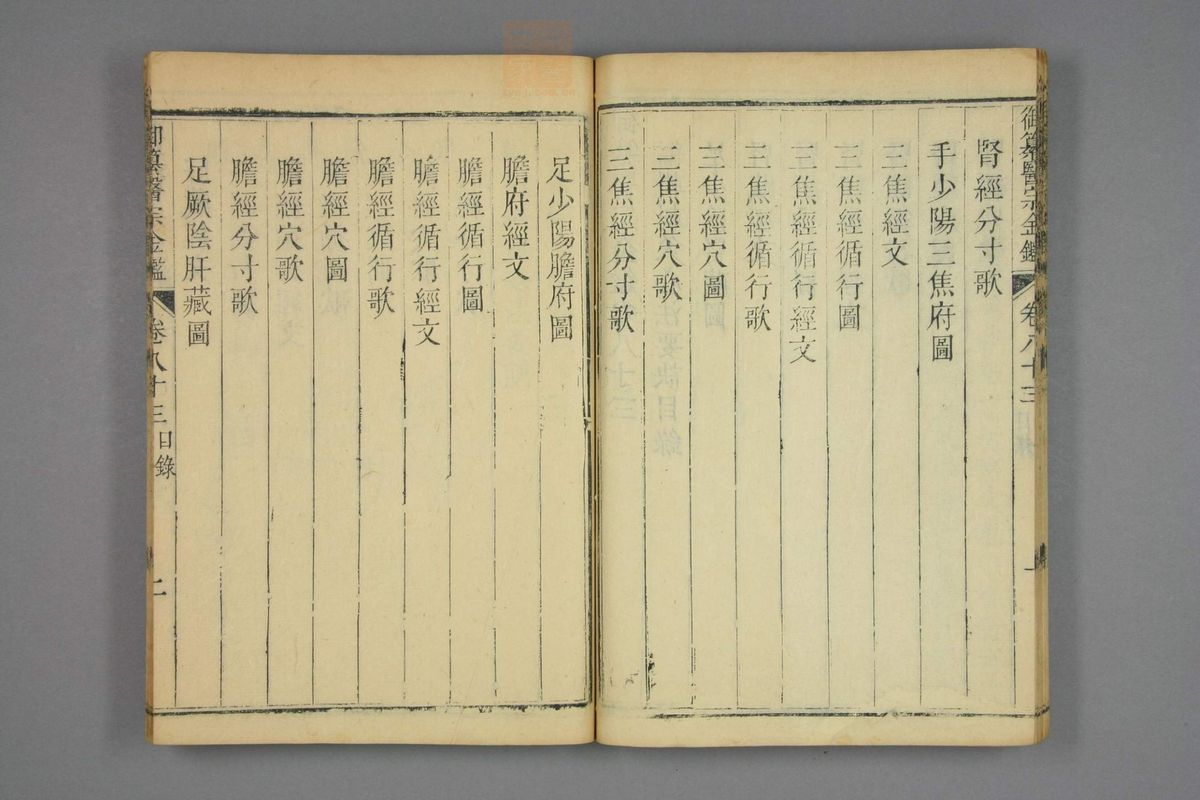 御纂醫宗金鑑 卷八十三 目錄 一
腎經分寸歌
手少陽三焦府圖
三焦經文
三焦經循行圖
三焦經循行經文
三焦經循行歌
三焦經穴圖
三焦經穴歌
三焦經分寸歌
足少陽膽府圖
膽府經文
膽經循行圖
膽經循行經文
膽經循行歌
膽經穴圖
膽經穴歌
膽經分寸歌
足厥陰肝藏圖
御纂醫宗金鑑 卷八十三 目錄 二